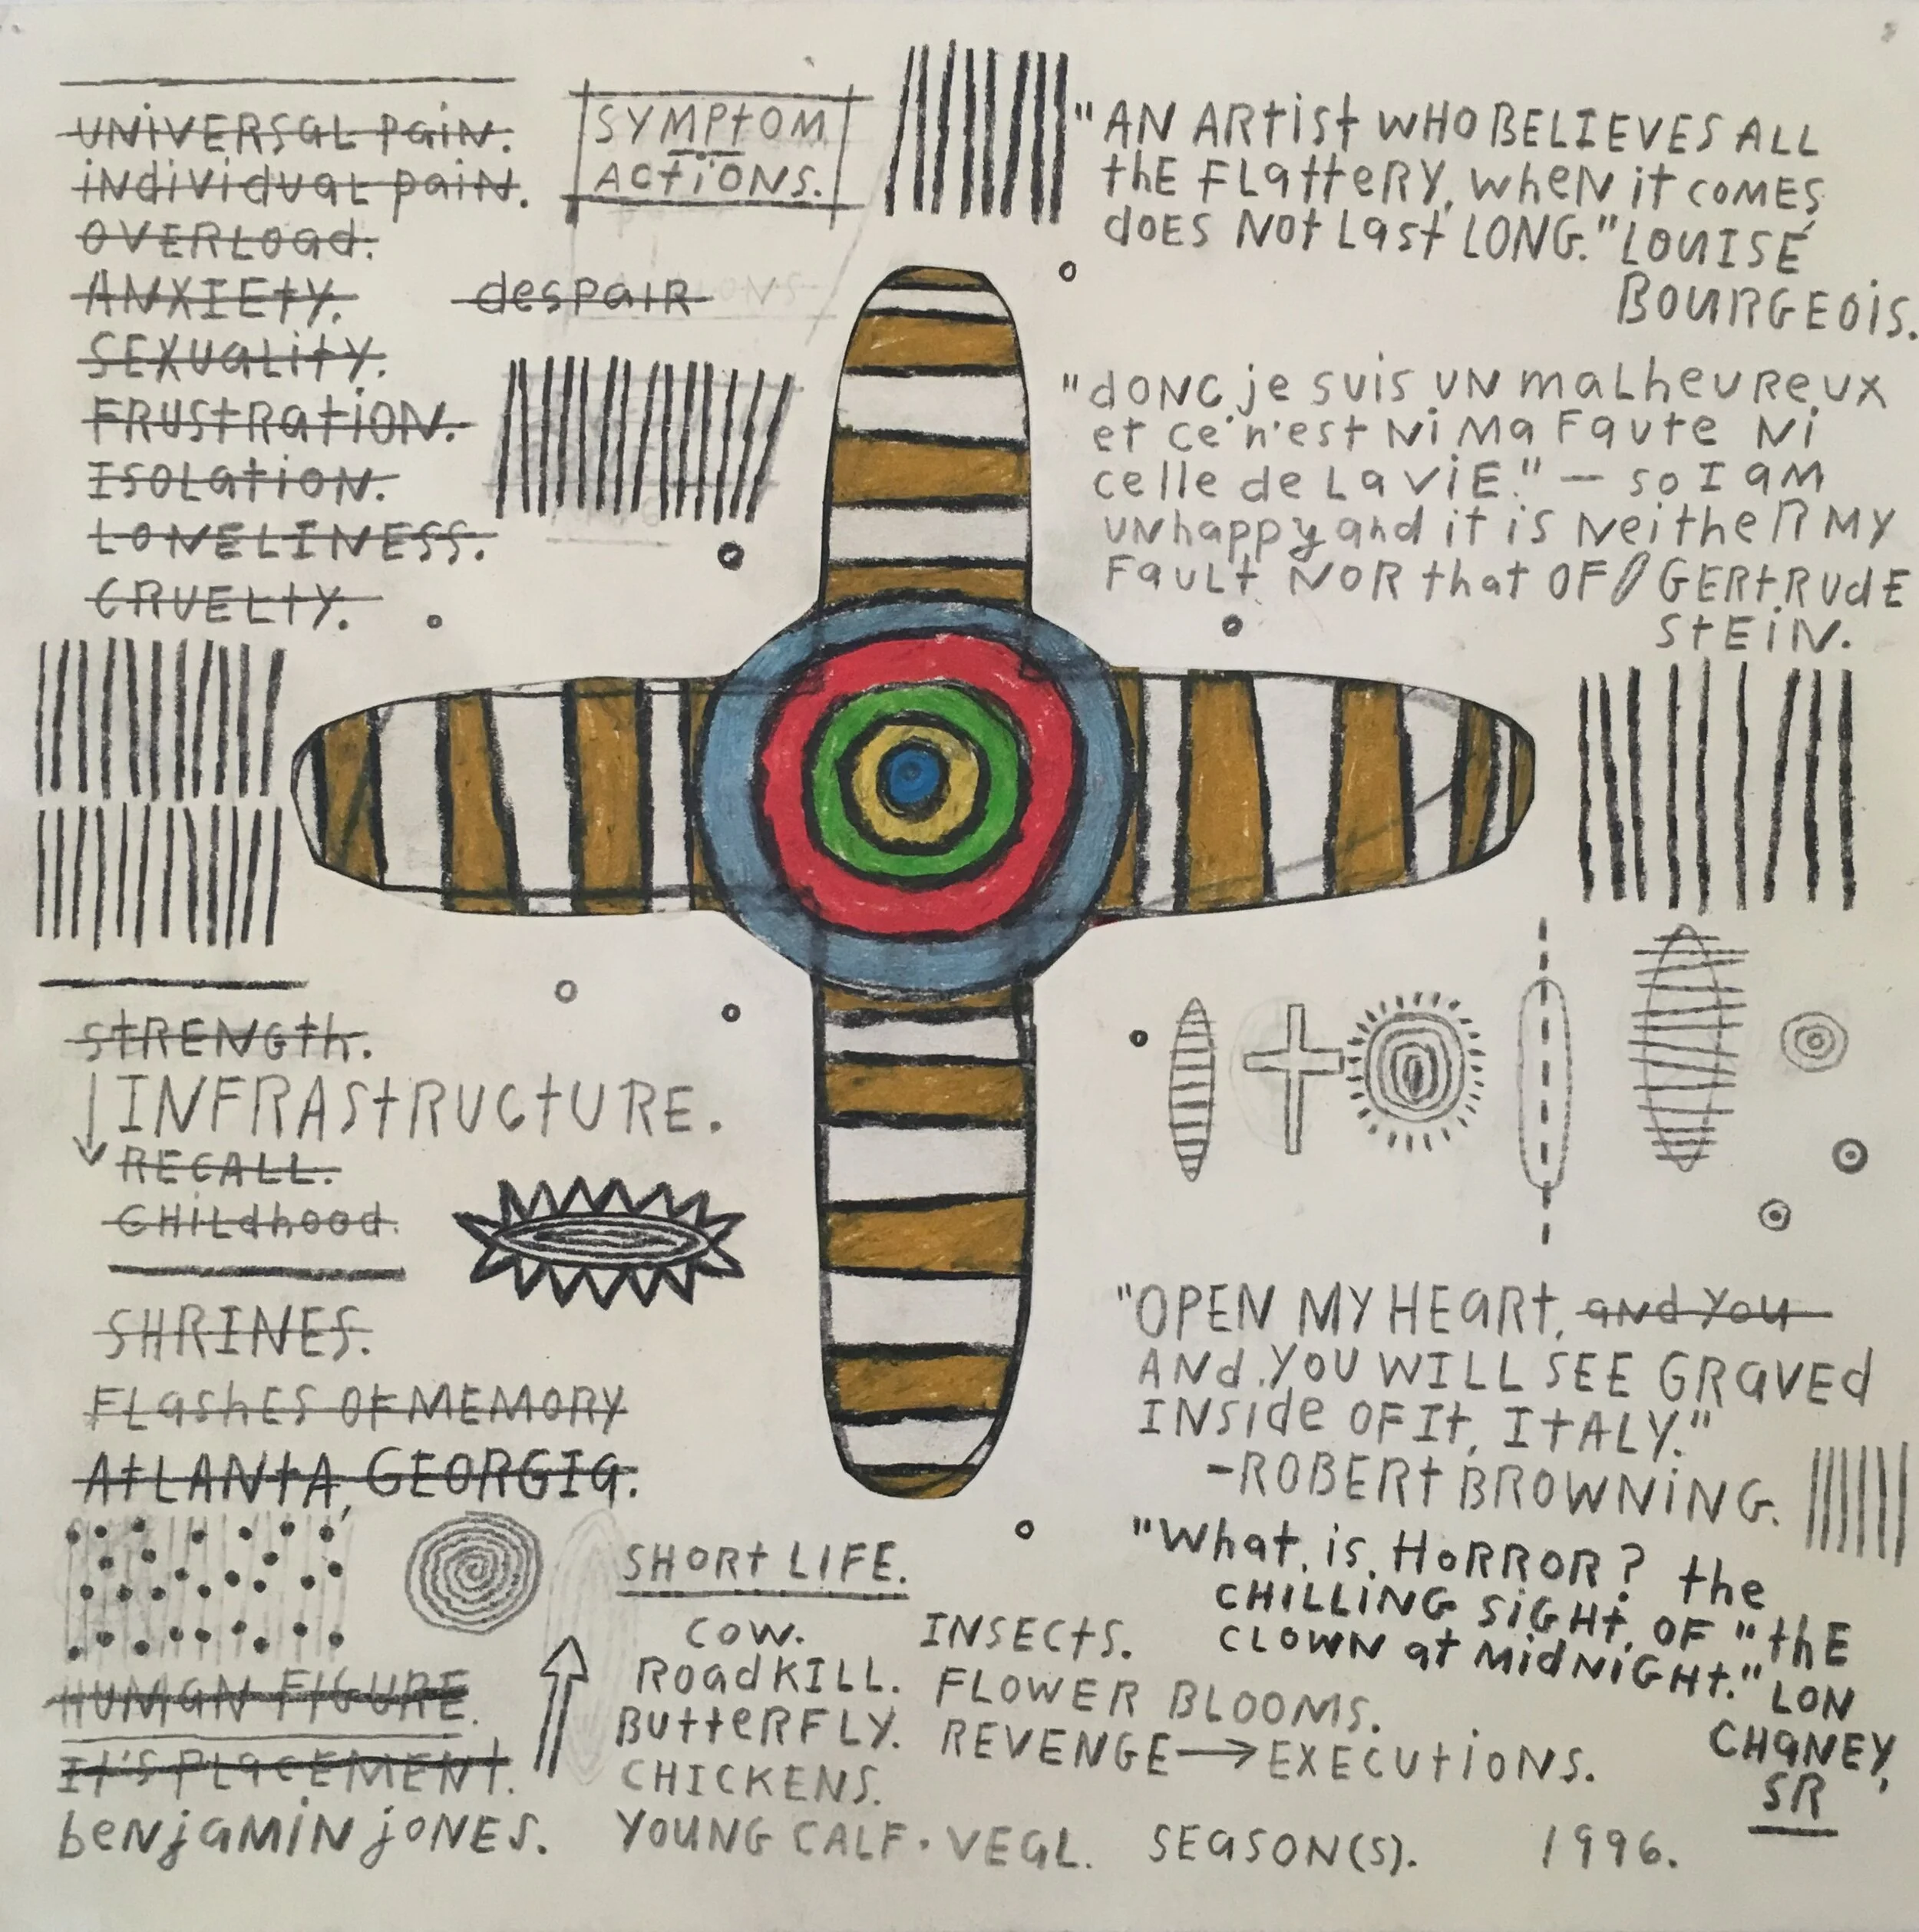 UNIVERSAL PAIN.
INDIVIDUAL PAIN.
OVERLOAD.
ANXIETY.
SEXUALITY.
FRUSTRATION.
ISOLATION.
LONELINESS.
CRUELTY.
SYMPTOM
ACTIONS.
despair
"AN ARTIST WHO BELIEVES ALL
THE FLATTERY, WHEN IT COMES,
DOES NOT LAST LONG." LOUISE
BOURGEOIS.
"donc je suis un malheureux
et ce n'est ni ma faute ni
celle de la vie." — so I am
unhappy and it is neither my
fault nor that of GERTRUDE
STEIN.
STRENGTH.
INFRASTRUCTURE.
RECALL.
CHILDHOOD.
SHRINES.
FLASHES OF MEMORY
ATLANTA, GEORGIA.
HUMAN FIGURE.
IT'S PLACEMENT.
benjamin jones.
"OPEN MY HEART, and you
AND YOU WILL SEE GRAVED
INSIDE OF IT, ITALY."
-ROBERT BROWNING.
"What is HORROR? the
CHILLING SIGHT OF "THE
CLOWN at MIDNIGHT." LON
CHANEY,
SR
SHORT LIFE.
COW.
ROADKILL.
BUTTERFLY.
CHICKENS.
YOUNG CALF. VEAL.
INSECTS.
FLOWER BLOOMS.
REVENGE → EXECUTIONS.
SEASON(S).
1996.